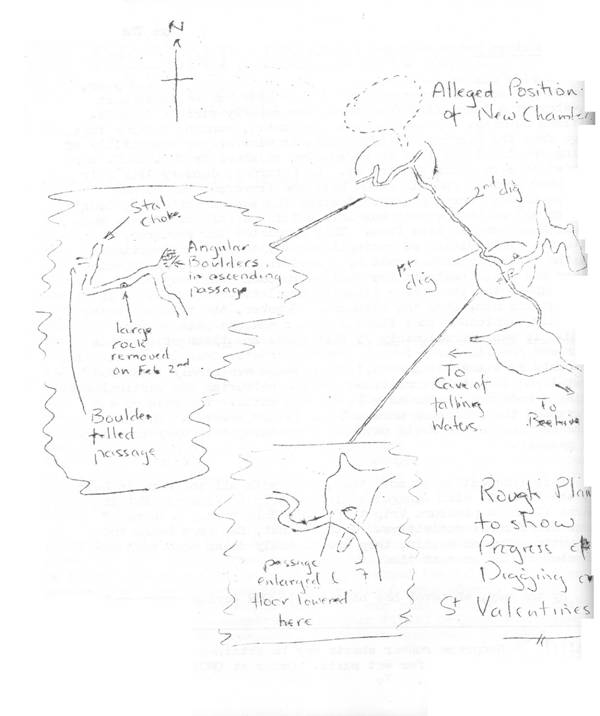 N
Alleged Position
of New Chamber
2nd dig
1st
dig
Stal
Choke
Angular
Boulders
in ascending
passage
large
rock
removed
on Feb 2nd
Boulder
filled
passage
To
Cave of
falling
Waters
To
Beehive
passage
enlarged &
floor lowered
here
Rough Plan
to show
Progress of
Digging
St Valentines